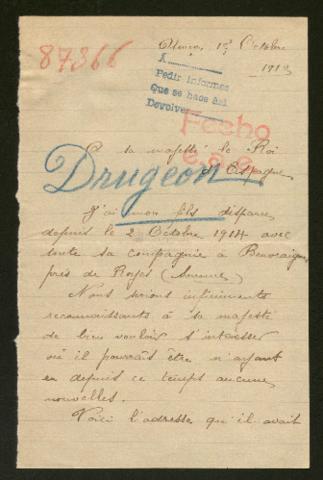 87366
1er Octobre
191
A
Pedir informes
Que se hace así
Devolver
Fecho
A sa majesté le Roi
d'Espagne
Drugeon
J'ai mon fils disparu
depuis le 2 Octobre 1914 avec
toute sa compagnie à Beuvraignes
près de Royes (Somme)
Nous serions infiniments
reconnaissants à sa majesté
de bien vouloir s'intéresser
où il pourrait être n'ayant
eu depuis ce temps aucune
nouvelles.
Voici l'adresse qu'il avait